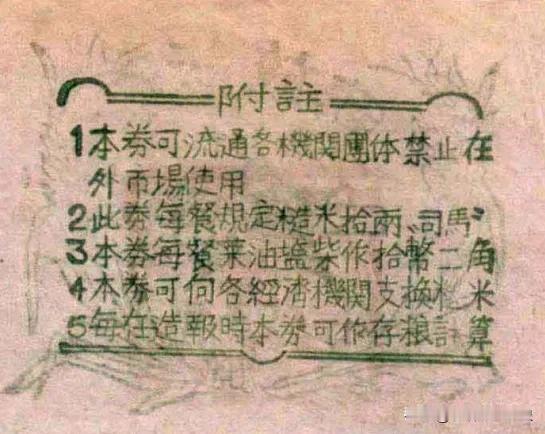 附註
1本券可流通各機関團体禁止在
外市場使用
2此券每餐規定糙米拾兩"司馬"
3本券每餐菜油盐柴作拾幣二角
4本券可向各經濟機関支換糙米
5每在造報時本券可作存粮計算